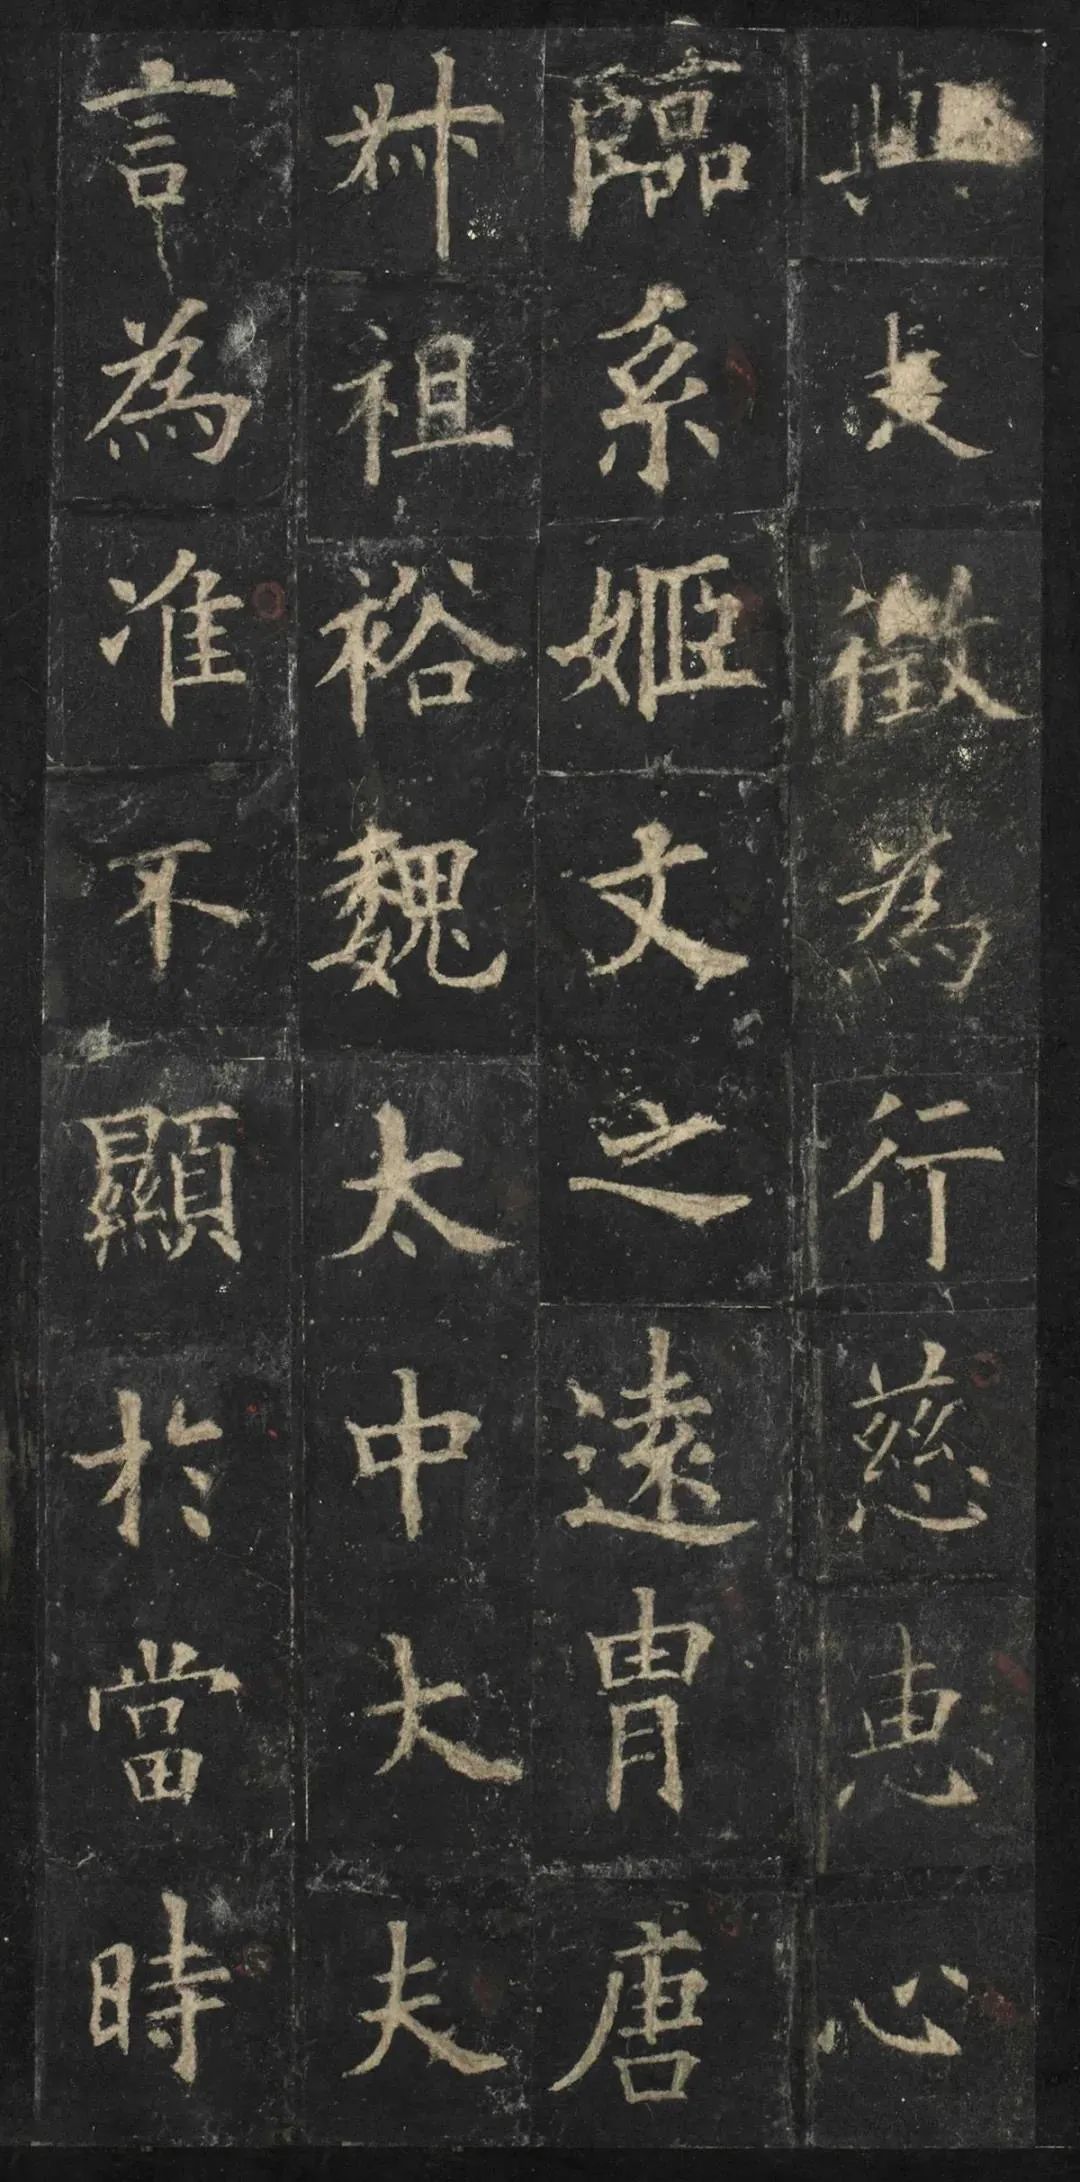 表徵為行慈惠心
臨系姬文之遠胄唐
叔祖裕魏太中大夫
言為准不顯於當時